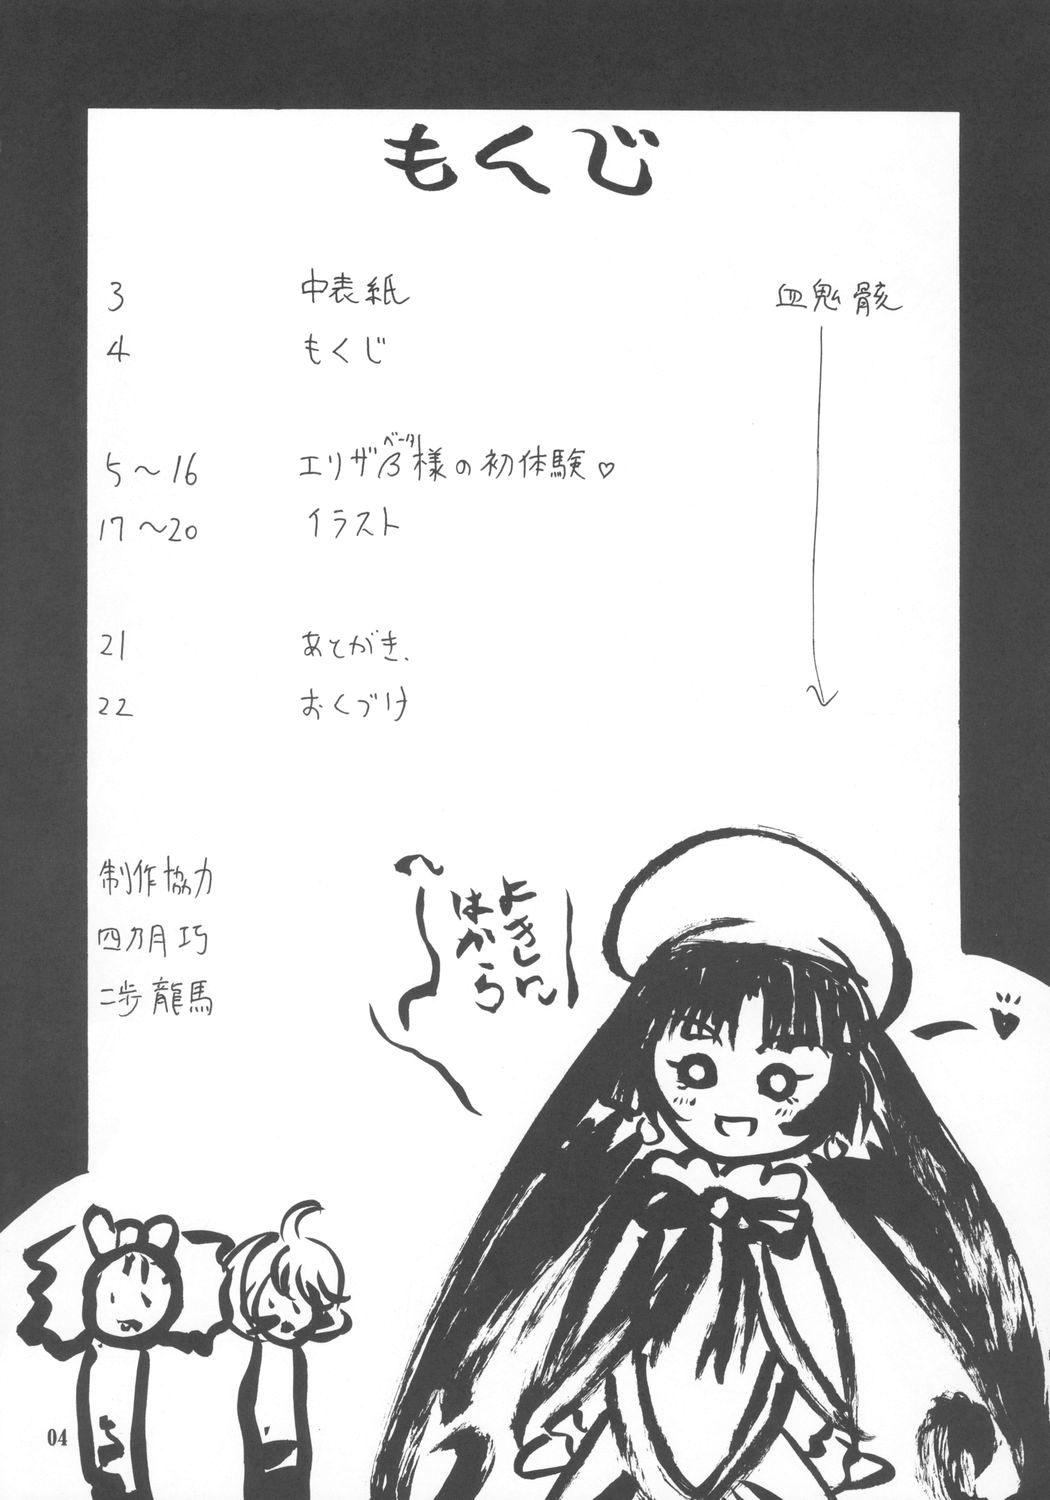 もくじ
3 中表紙 血鬼骸
4 もくじ
5～16 エリザβ様の初体験♡
ベータ
17～20 イラスト
21 あとがき、
22 おくづけ
制作協力
四カ月巧
二歩龍馬
よきに
はからへ
04